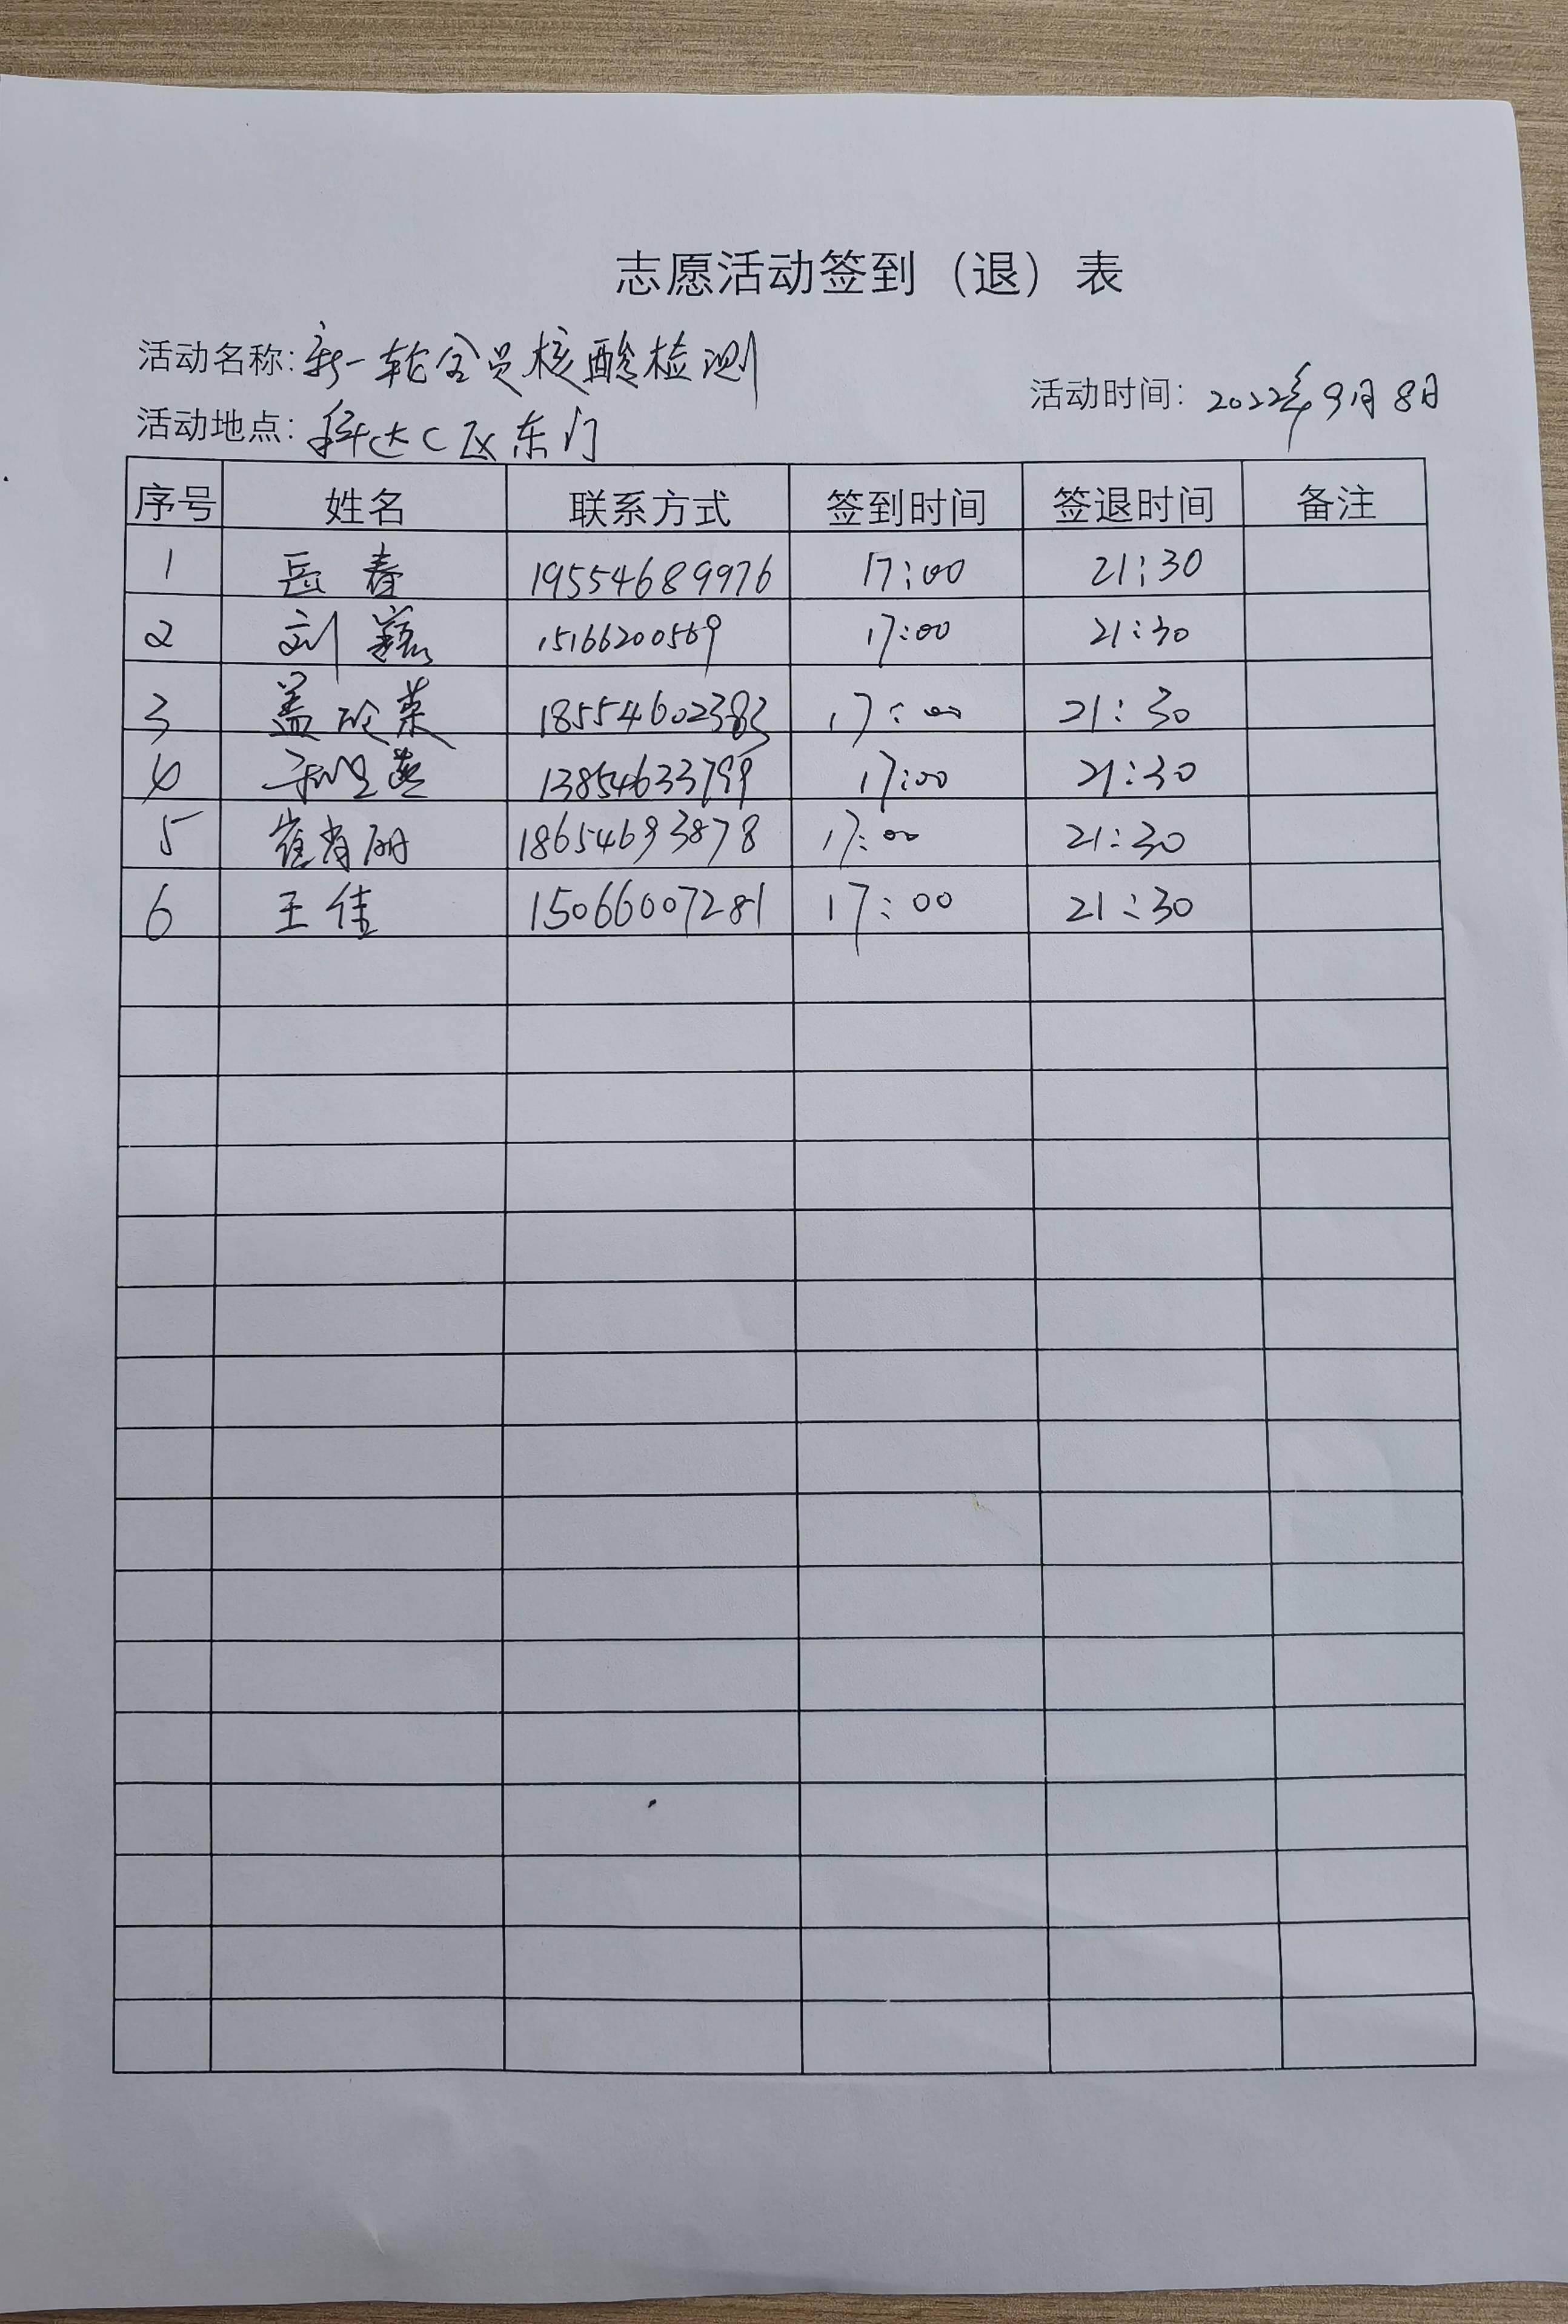 志愿活动签到（退）表
活动名称：新一轮全员核酸检测
活动时间：2022年9月8日
活动地点：科达C区东门
序号 姓名 联系方式 签到时间 签退时间 备注
1 岳春 19554689976 17:00 21:30
2 刘 15166200569 17:00 21:30
3 盖 菜 18554602383 17:00 21:30
4 13854633799 17:00 21:30
5 崔肖丽 18654693878 17:00 21:30
6 王佳 15066007281 17:00 21:30